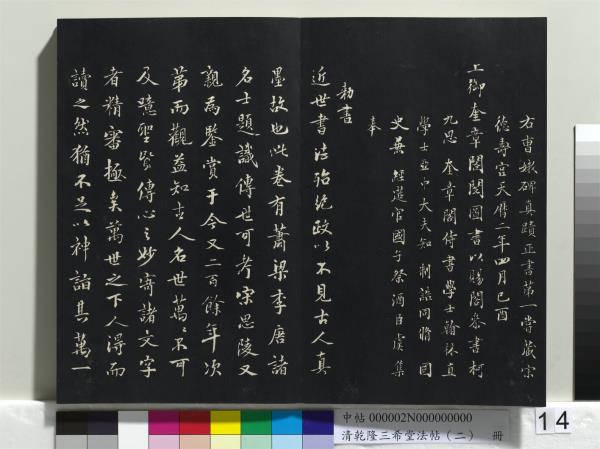 右曹娥碑真蹟正書第一嘗藏宋
德壽宮天曆二年四月己酉
上御奎章閣閱圖書以賜閣參書柯
九思 奎章閣侍書學士翰林直
學士亞中大夫知 制誥同脩 國
史兼 經筵官國子祭酒臣虞集
奉
勅書
近世書法殆絕政以不見古人真
墨故也此卷有蕭梁李唐諸
名士題識傳世可考宋思陵又
親為鑒賞于今又二百餘年次
第而觀益知古人名世萬萬不可
及噫聖賢傳心之妙寄諸文字
者精審極矣萬世之下人得而
讀之然猶不足以神詣其萬一
14
中帖 000002N000000000
清乾隆三希堂法帖（二） 冊